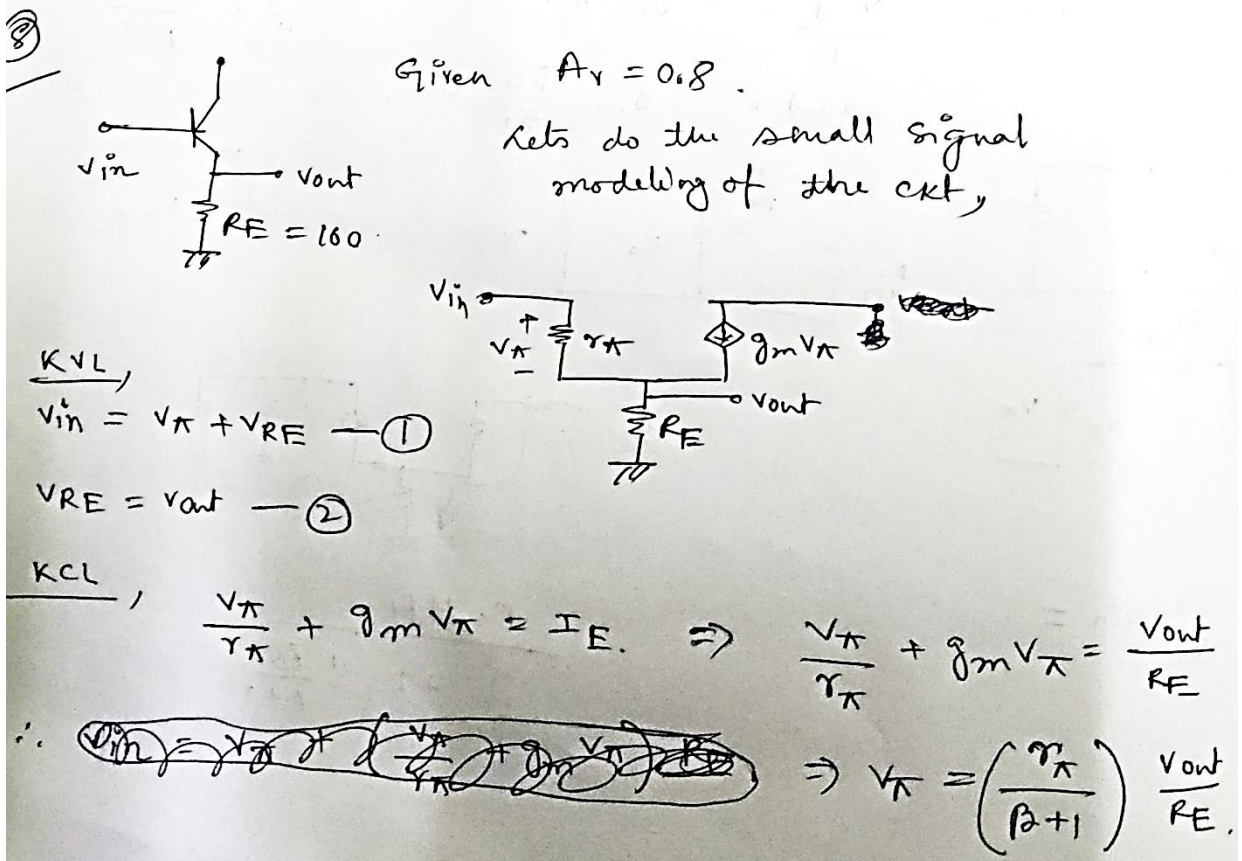 8
Given Av = 0.8.
Lets do the small signal
modeling of the ckt,
Vin
Vout
RE = 100
Vin
+
Vπ
-
rπ
gmVπ
Vout
RE
KVL,
Vin = Vπ + VRE — ①
VRE = Vout — ②
KCL,
Vπ/rπ + gm Vπ = IE. ⇒ Vπ/rπ + gm Vπ = Vout/RE
∴ ⇒ Vπ = (rπ/(β+1)) Vout/RE.